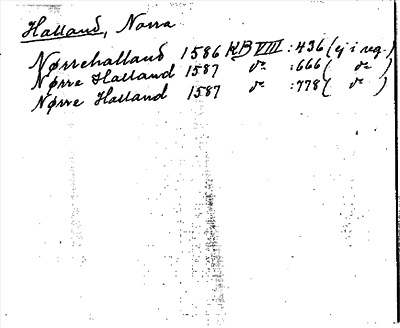 Halland, Norra
Nørrehalland 1586 KB VIII :436 (ej i reg.)
Nørre Halland 1587 do :666 ( do )
Nørre Halland 1587 do :778 ( do )